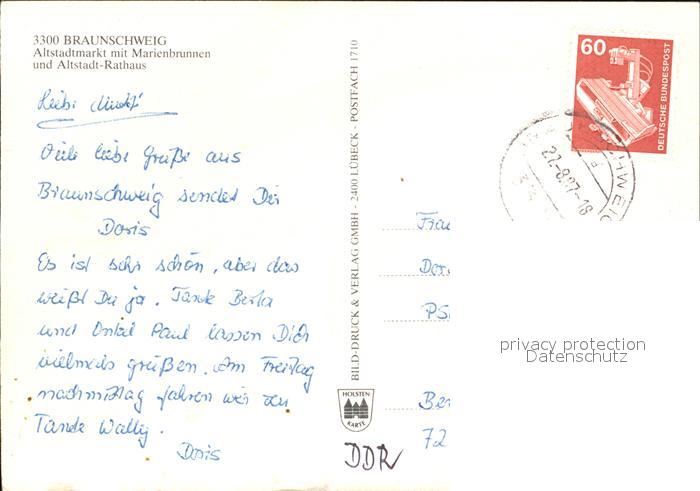 3300 BRAUNSCHWEIG
Altstadtmarkt mit Marienbrunnen
und Altstadt-Rathaus
Liebe
Viele liebe Grüße aus
Braunschweig sendet Dir
Doris
Es ist sehr schön, aber das
weißt Du ja. Tante Berta
und Onkel Paul lassen Dich
vielmals grüßen. Am Freitag
nachmittag fahren wir zu
Tante Wally.
Doris
BILD-DRUCK & VERLAG GMBH - 2400 LÜBECK - POSTFACH 1710
HOLSTEN
KARTE
60
DEUTSCHE BUNDESPOST
27.-8.87-18
Frau
Dor
PS
Ber
72
DDR
privacy protection
Datenschutz